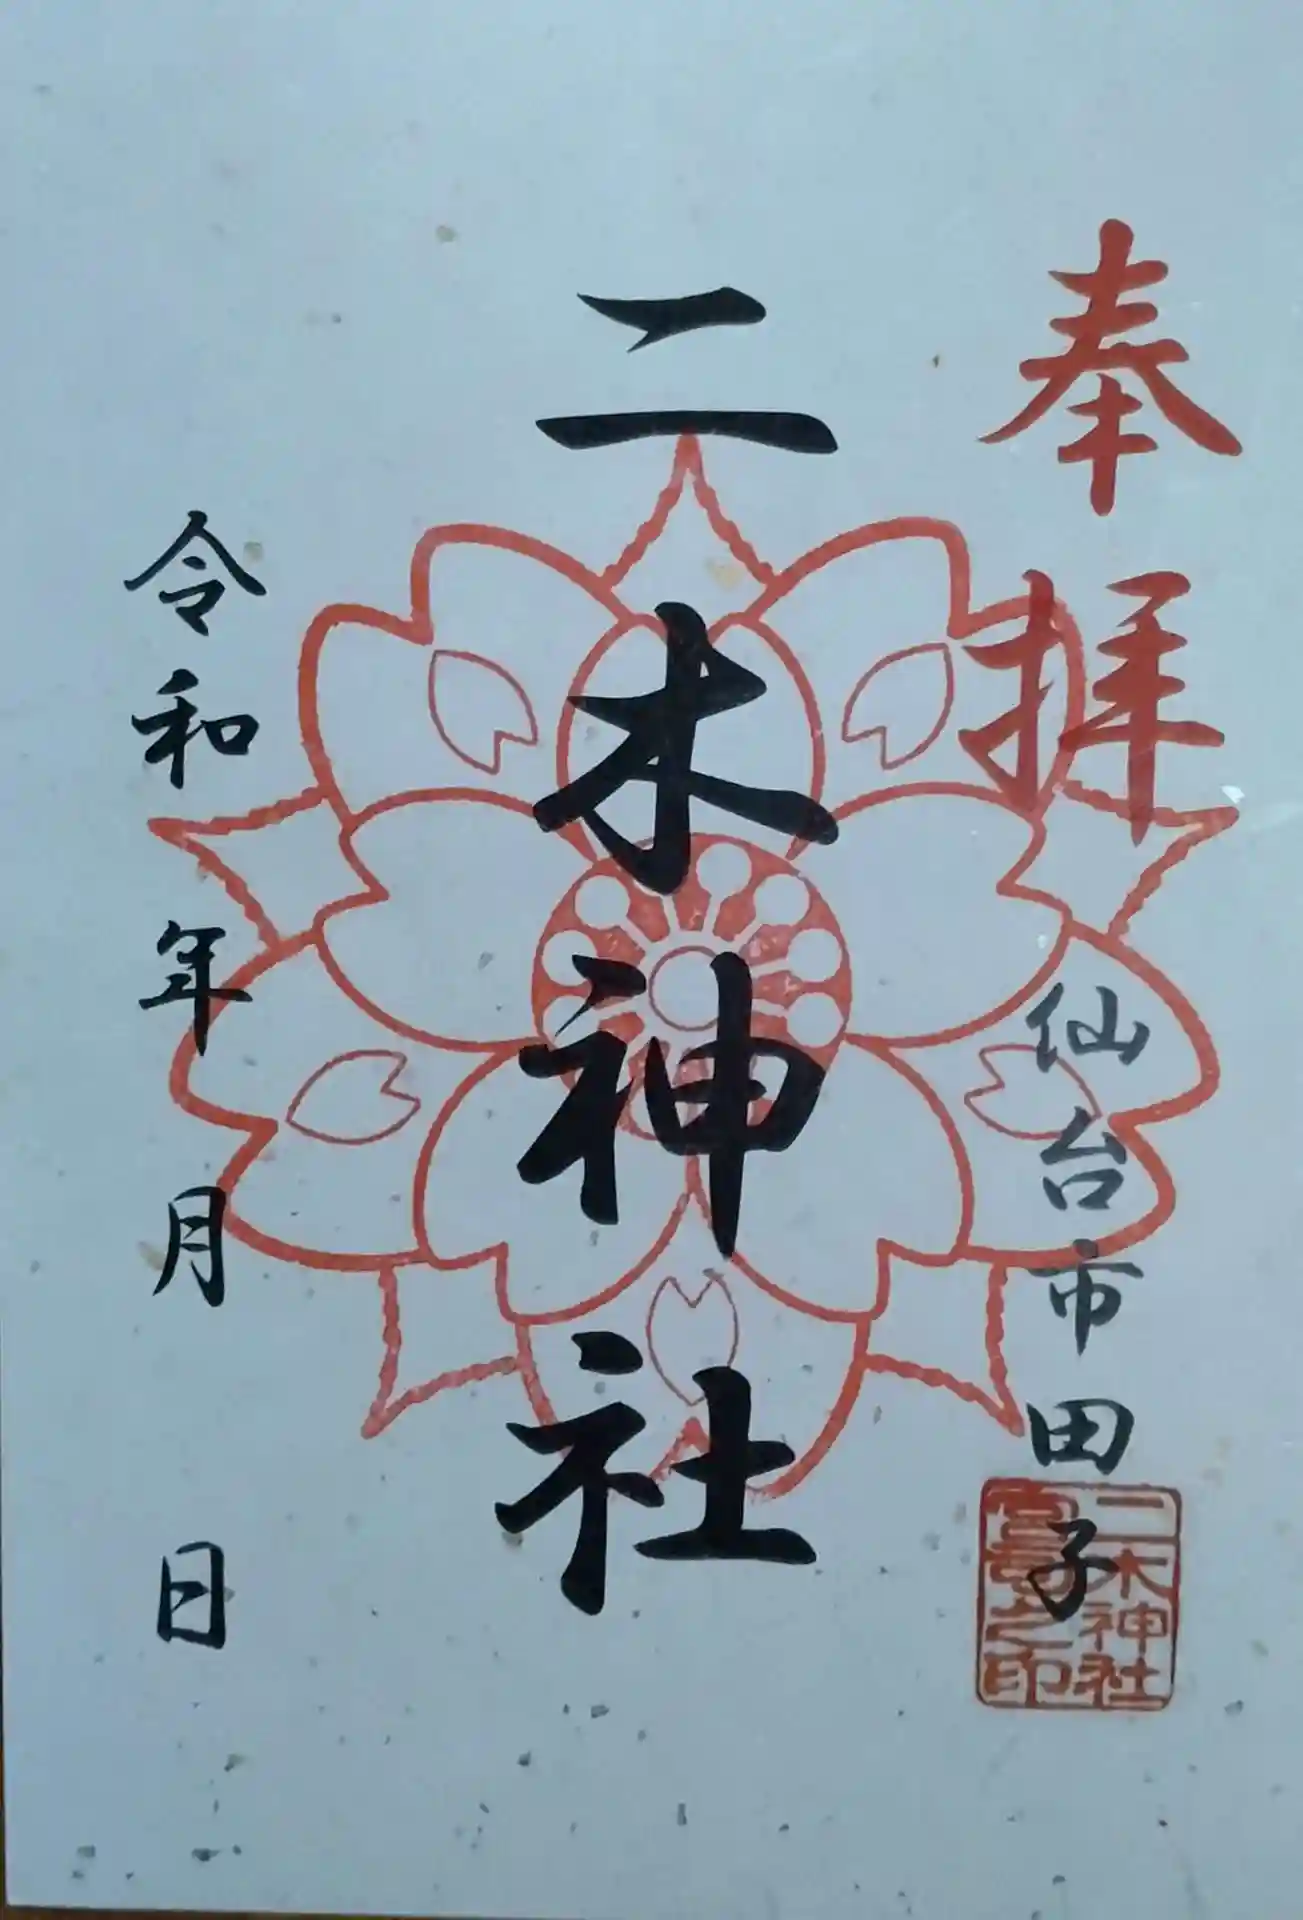 奉拝
仙台市田子
二木神社
二木神社
之印
令和 年 月 日